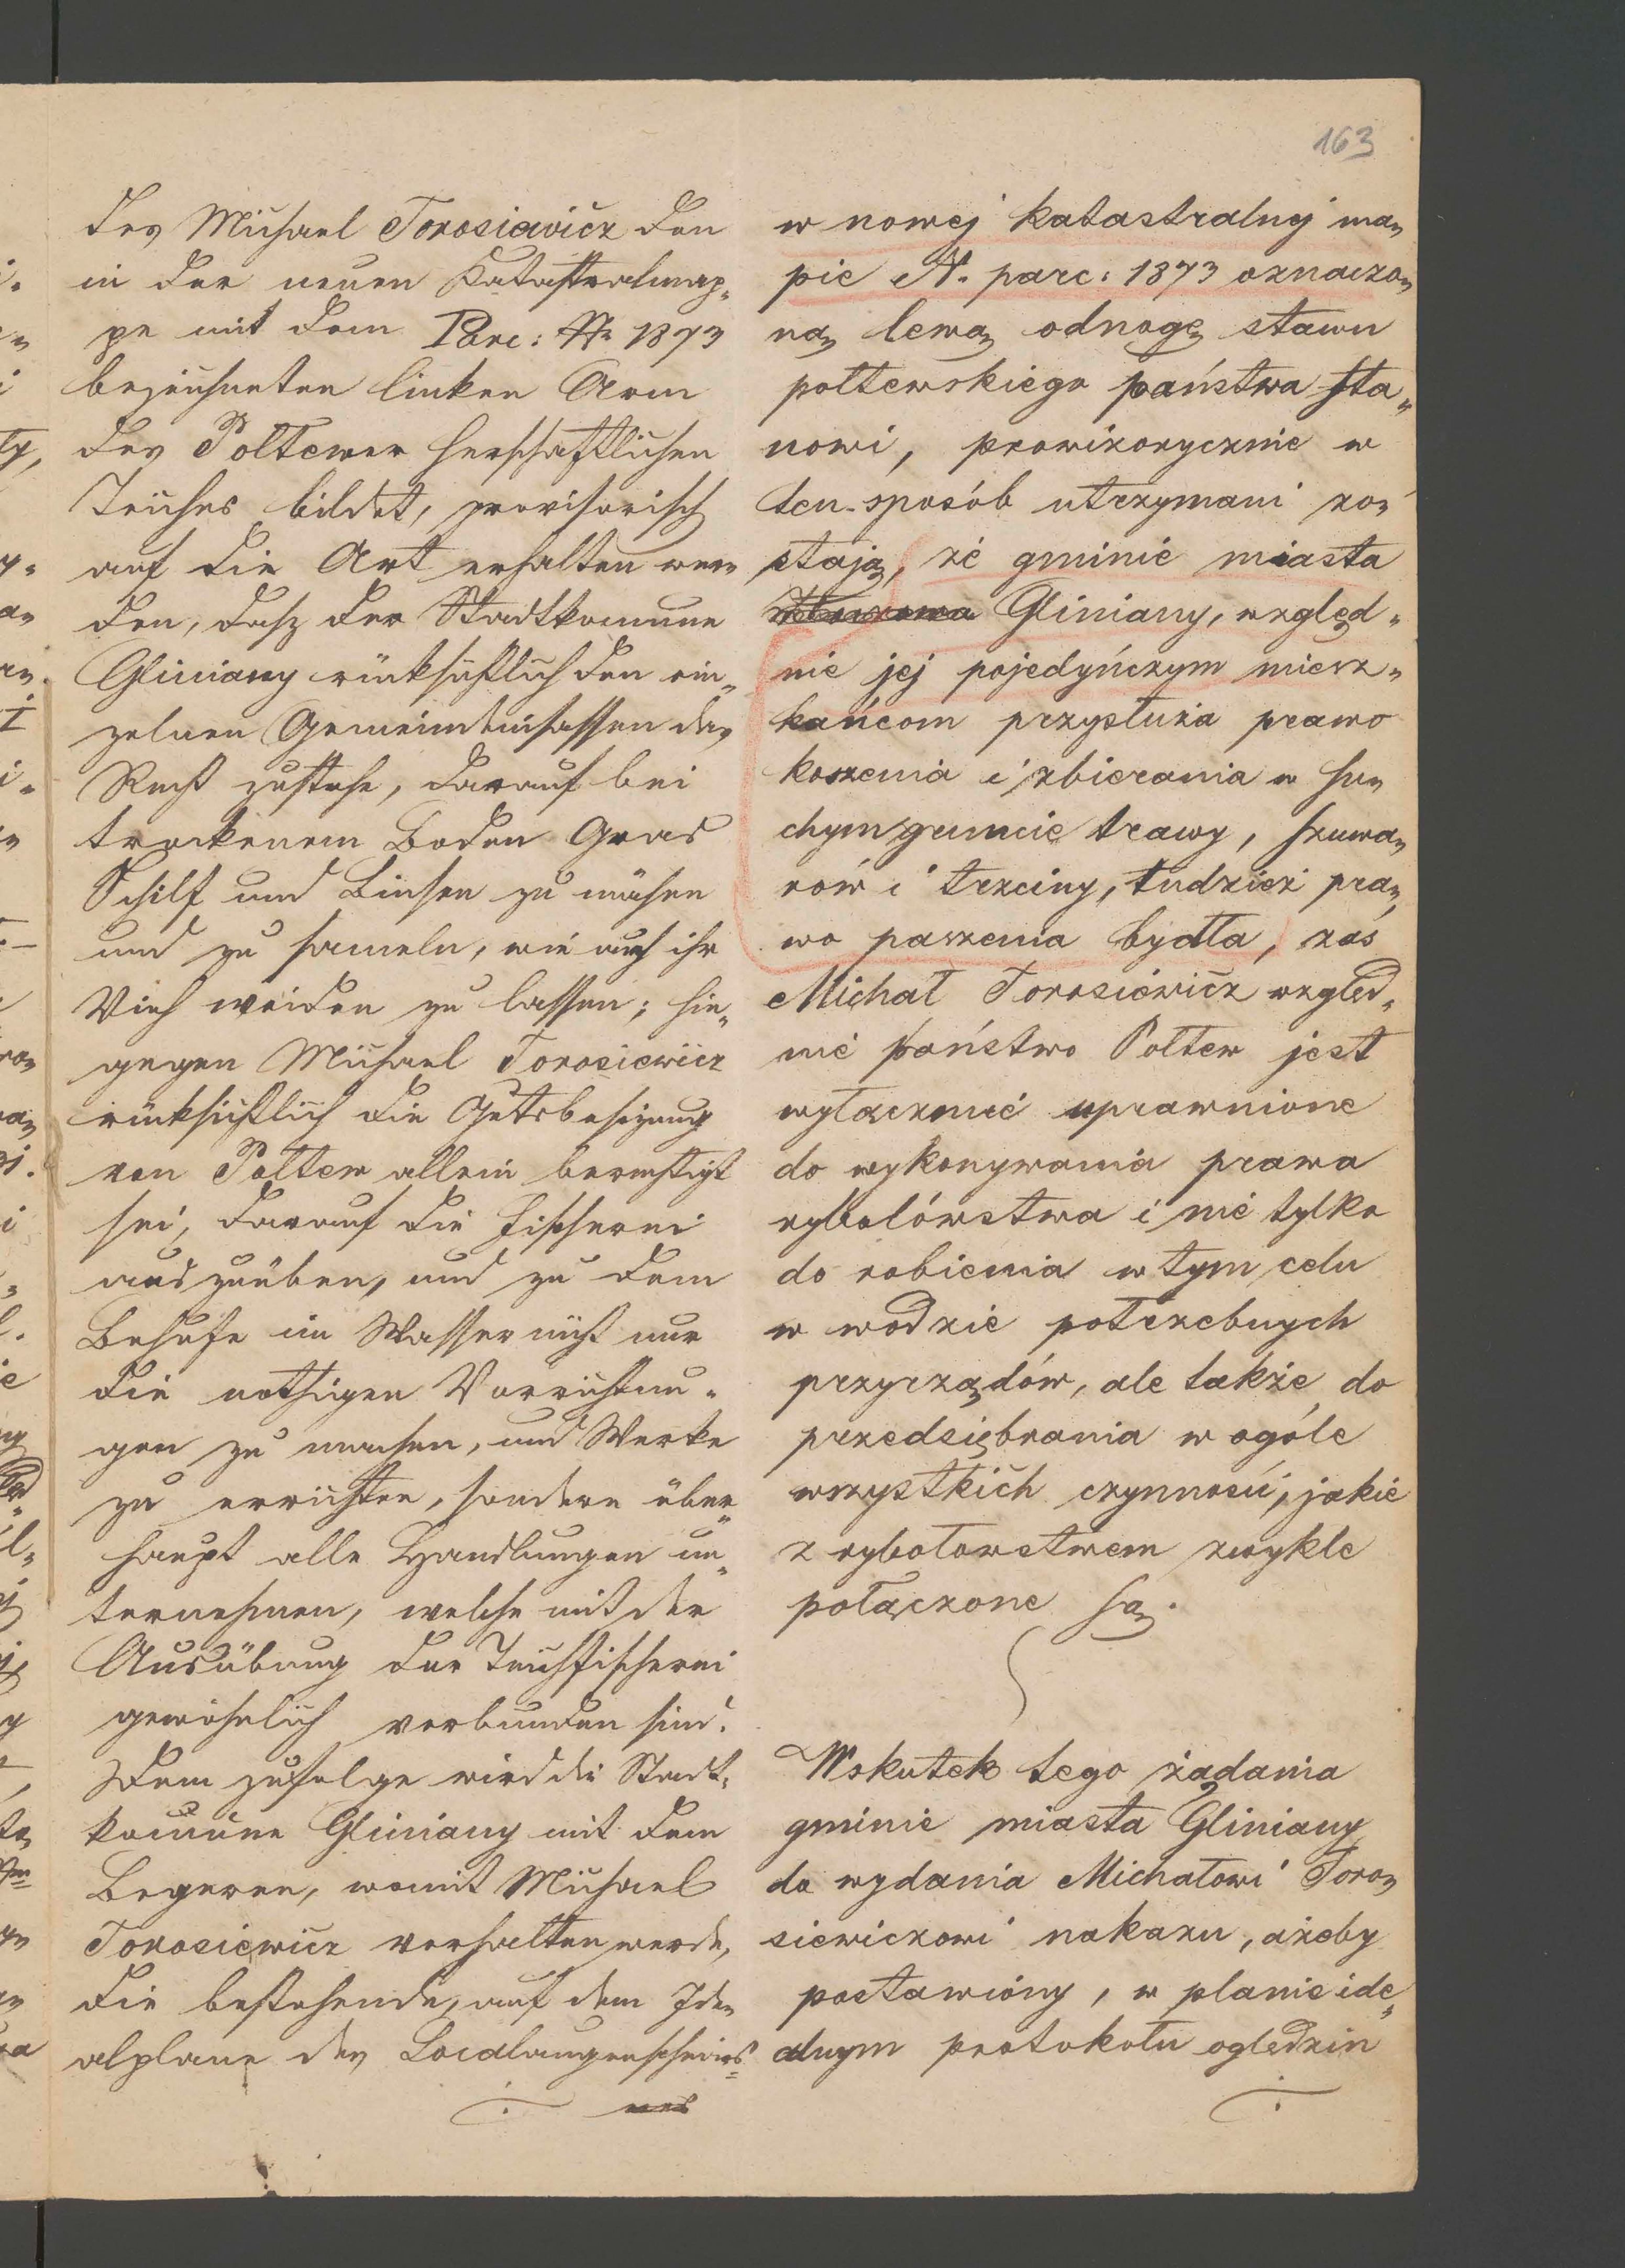 163
des Michael Torosiewicz den
in der neuen Katastralmap„
pe mit dem Parc: № 1873
bezeichneten linken Arm
des Poltewer herschaftlichen
Teiches bildet, provisorisch
auf die Art erhalten wer„
den, dasz der Stadtkomune
Gliniany rücksichtlich den ein„
zelnen Gemeindeinsassen das
Recht zustehe, darauf bei
trockenem Boden Gras
Schilf und Binsen zu mähen
und zu sameln, wie auch ihr
Vieh weiden zu lassen; hin„
gegen Michael Torosiewicz
rücksichtlich die Gutsbesizung
von Poltew allein berechtigt
sei, darauf die Fischerei
auszuüben, und zu dem
Behufe im Wasser nicht nur
die nothigen Vorrichtun„
gen zu machen, und Werke
zu errichten, sondern über„
haupt alle Handlungen un„
ternehmen, welche mit der
Ausübung der Teichfischerei
gewöhnlich verbunden sind.
Dem zufolge wird die Stadt„
komune Gliniany mit dem
Begeren, womit Michael
Torosiewicz verhalten werde,
die bestehende, auf dem Ide„
alplane des Localaugenscheins„
nes
w nowej katastralnej ma„
pie N. parc: 1873 oznaczo„
ną lewą odnogę stawu
połtewskiego państwa sta„
nowi, prowizorycznie w
ten sposób utrzymani zo„
stają, że gminie miasta
Gliniany, względ„
nie jej pojedyńczym miesz„
kańcom przysłuża prawo
koszenia i zbierania w su„
chym gruncie trawy, szuwa„
rów i trzciny, tudzież pra„
wo paszenia bydła, zaś
Michał Torosiewicz względ„
nie państwo Połtew jest
wyłącznie uprawnione
do wykonywania prawa
rybołówstwa i nie tylko
do robienia w tym celu
w wodzie potrzebnych
przyrządów, ale także do
przedsiębrania w ogóle
wszystkich czynności, jakie
z rybołowstwem zwykle
połączone są.
Wskutek tego żądania
gminie miasta Gliniany
do wydania Michałowi Toro„
siewiczowi nakazu, ażeby
postawiony, w planie ide„
alnym protokołu oględzin